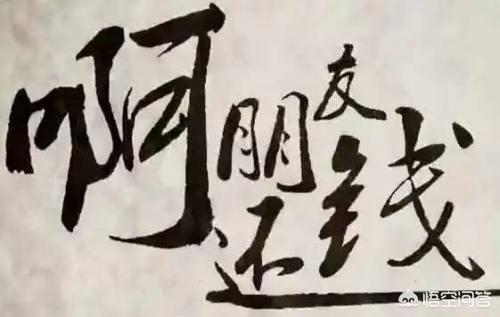 啊朋友
还钱
悟空问答